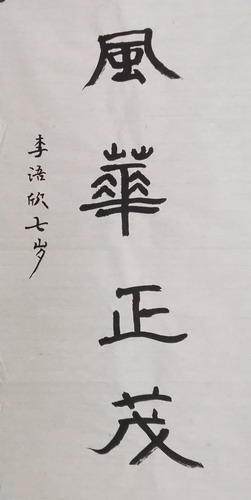 風華正茂
李语欣七岁